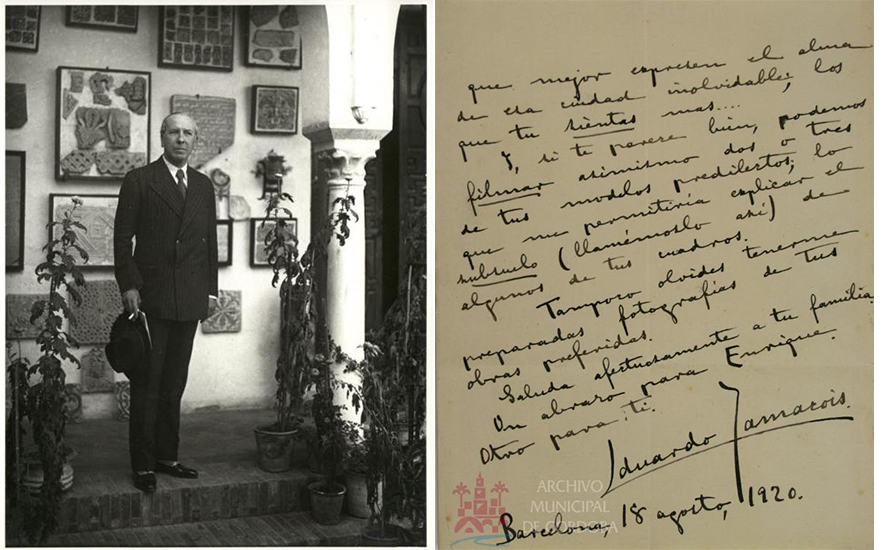 que mejor expresen el alma
de esa ciudad inolvidable; los
que tu sientas mas....
Y, si te parece bien, podemos
filmar asimismo dos o tres
de tus modelos predilectos; lo
que me permitiría explicar el
subsuelo (llamémoslo así) de
algunos de tus cuadros.
Tampoco olvides tenerme
preparadas fotografías de tus
obras preferidas.
Saluda afectuosamente a tu familia.
Un abrazo para Enrique.
Otro para ti.
Eduardo Zamacois.
Barcelona, 18 agosto, 1920.
ARCHIVO
MUNICIPAL
DE CÓRDOBA